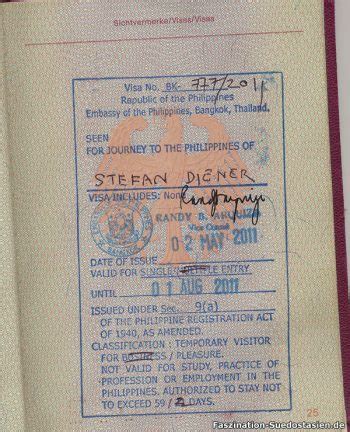 Sichtvermerke/Visas/Visas
Visa No. BK- 777/2011
Republic of the Philippines
Embassy of the Philippines, Bangkok, Thailand.
SEEN
FOR JOURNEY TO THE PHILIPPINES OF
STEFAN DIENER
VISA INCLUDES: None
RANDY B.
Vice Consul
02 MAY 2011
DATE OF ISSUE
VALID FOR SINGLE/ ENTRY
UNTIL 01 AUG 2011
ISSUED UNDER Sec. 9(a)
OF THE PHILIPPINE REGISTRATION ACT
OF 1940, AS AMENDED.
CLASSIFICATION : TEMPORARY VISITOR
FOR BUSINESS / PLEASURE.
NOT VALID FOR STUDY, PRACTICE OF
PROFESSION OR EMPLOYMENT IN THE
PHILIPPINES. AUTHORIZED TO STAY NOT
TO EXCEED 59 / DAYS.
25
Faszination-Suedostasien.de